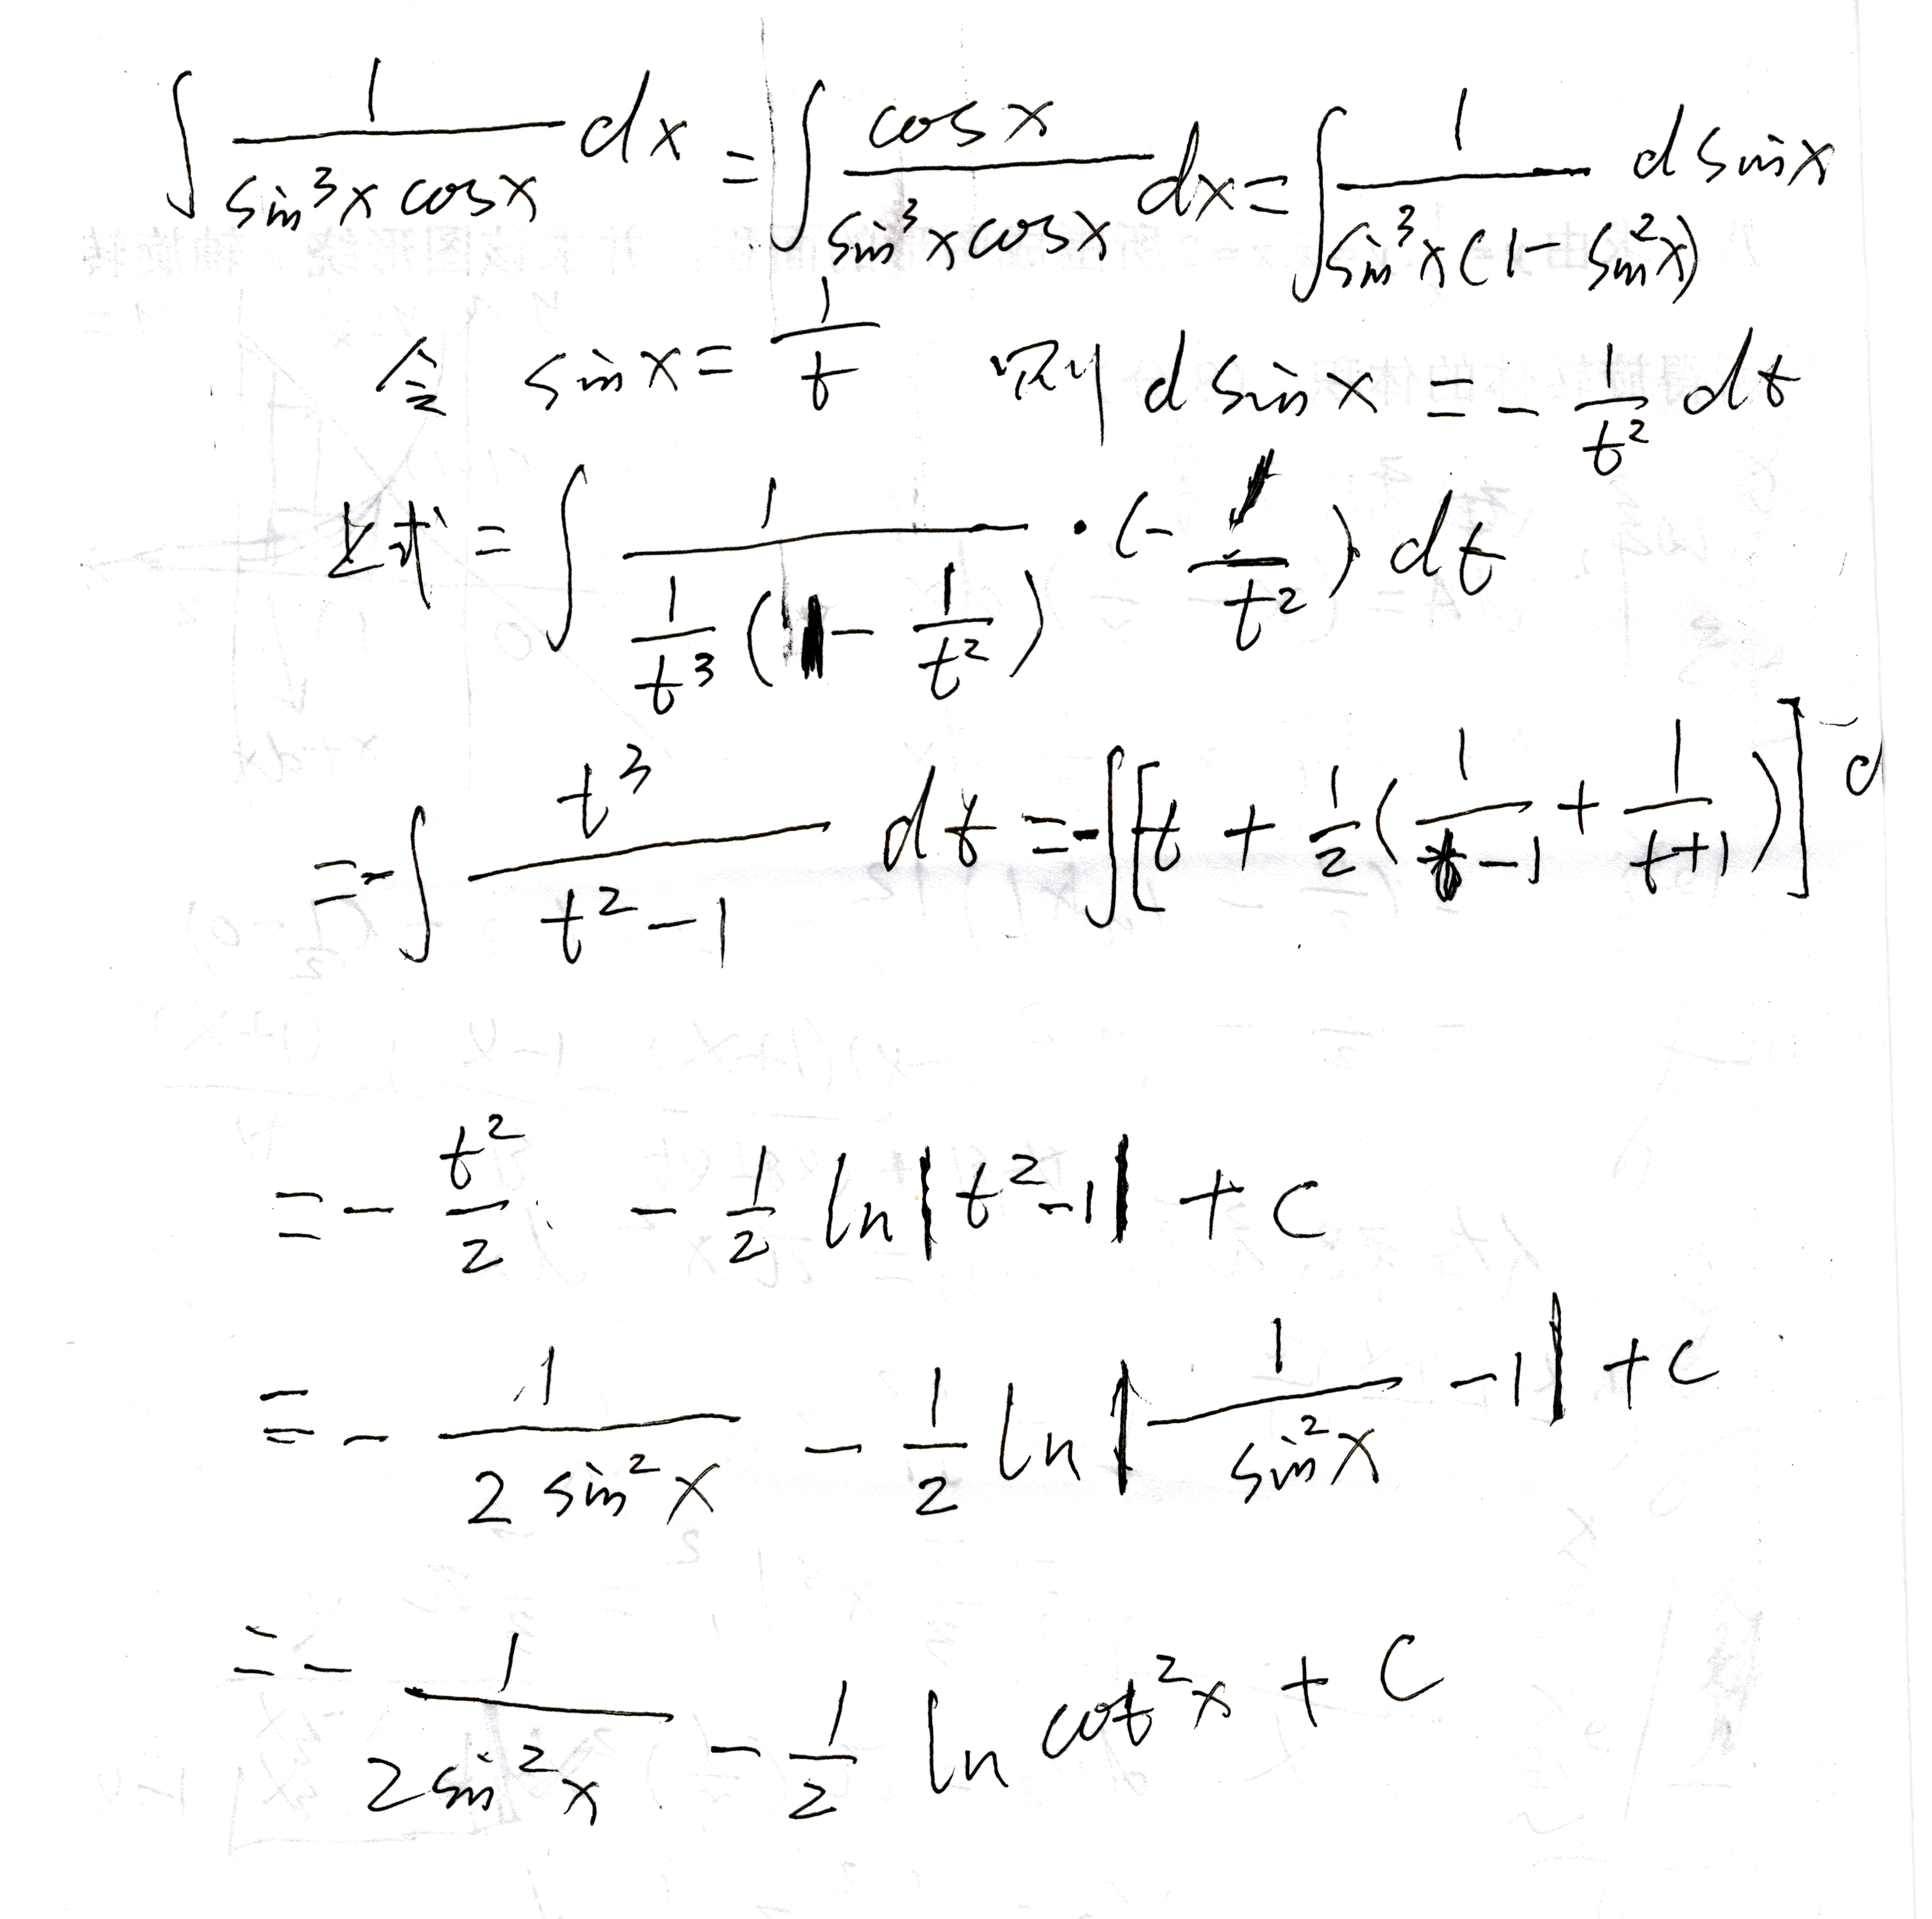 ∫ 1/(sin³x cosx) dx = ∫ cosx/(sin³x cosx) dx = ∫ 1/(sin³x(1-sin²x)) d sinx
令 sinx = 1/t 则 d sinx = - 1/t² dt
上式 = ∫ 1/(1/t³ (1 - 1/t²)) · (- 1/t²) dt
= -∫ t³/(t²-1) dt = -∫[t + 1/2(1/(t-1) + 1/(t+1))] d
= - t²/2 - 1/2 ln|t²-1| + C
= - 1/(2 sin²x) - 1/2 ln|1/sin²x - 1| + C
= - 1/(2 sin²x) - 1/2 ln cot²x + C